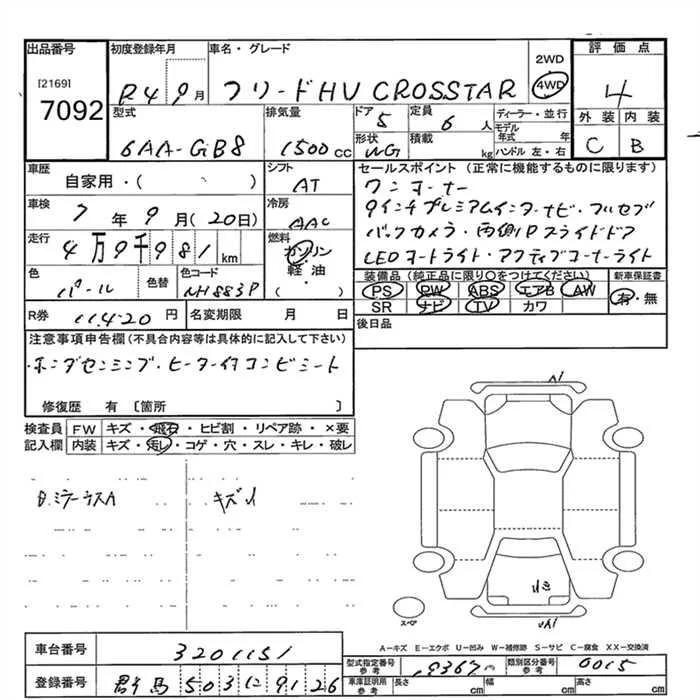 出品番号
[2169]
7092
初度登録年月
R4 9月
車名・グレード
フリードHV CROSSTAR
2WD
4WD
評価点
4
外装 内装
C B
型式
6AA-GB8
排気量
1500cc
ドア
5
形状
WG
定員
6人
積載
kg
ディーラー・並行
モデル年式 年
ハンドル 左・右
車歴
自家用・( )
シフト
AT
セールスポイント (正常に機能するものに限ります)
ワンオーナー
9インチプレミアムインターナビ・フルセグ
バックカメラ・両側Pスライドドア
LEDオートライト・アクティブコーナーライト
車検
7年9月(20日)
冷房
AAC
走行
4万9千981km
燃料
ガソリン
軽・油
( )
色
パール
色替
色コード
NH883P
装備品 (純正品に限り〇をつけてください)
PS PW ABS エアB AW
SR ナビ TV カワ
新車保証書
有・無
R券
11420円
名変期限 月 日
後日品
注意事項申告欄(不具合内容等は具体的に記入して下さい)
ホンダセンシング・ヒーター付コンビシート
修復歴 有 〔箇所 〕
検査員 FW キズ・飛石・ヒビ割・リペア跡・×要
記入欄 内装 キズ・汚レ・コゲ・穴・スレ・キレ・破レ
キズ小
スペア
A-キズ E-エクボ U-凹み W-補修跡 S-サビ C-腐食 XX-交換済
車台番号
3201151
登録番号
群馬 503 に 9126
型式指定番号
参考
19367
類別区分番号
参考
0015
車庫証明用
参考
長さ
cm
幅
cm
高さ
cm